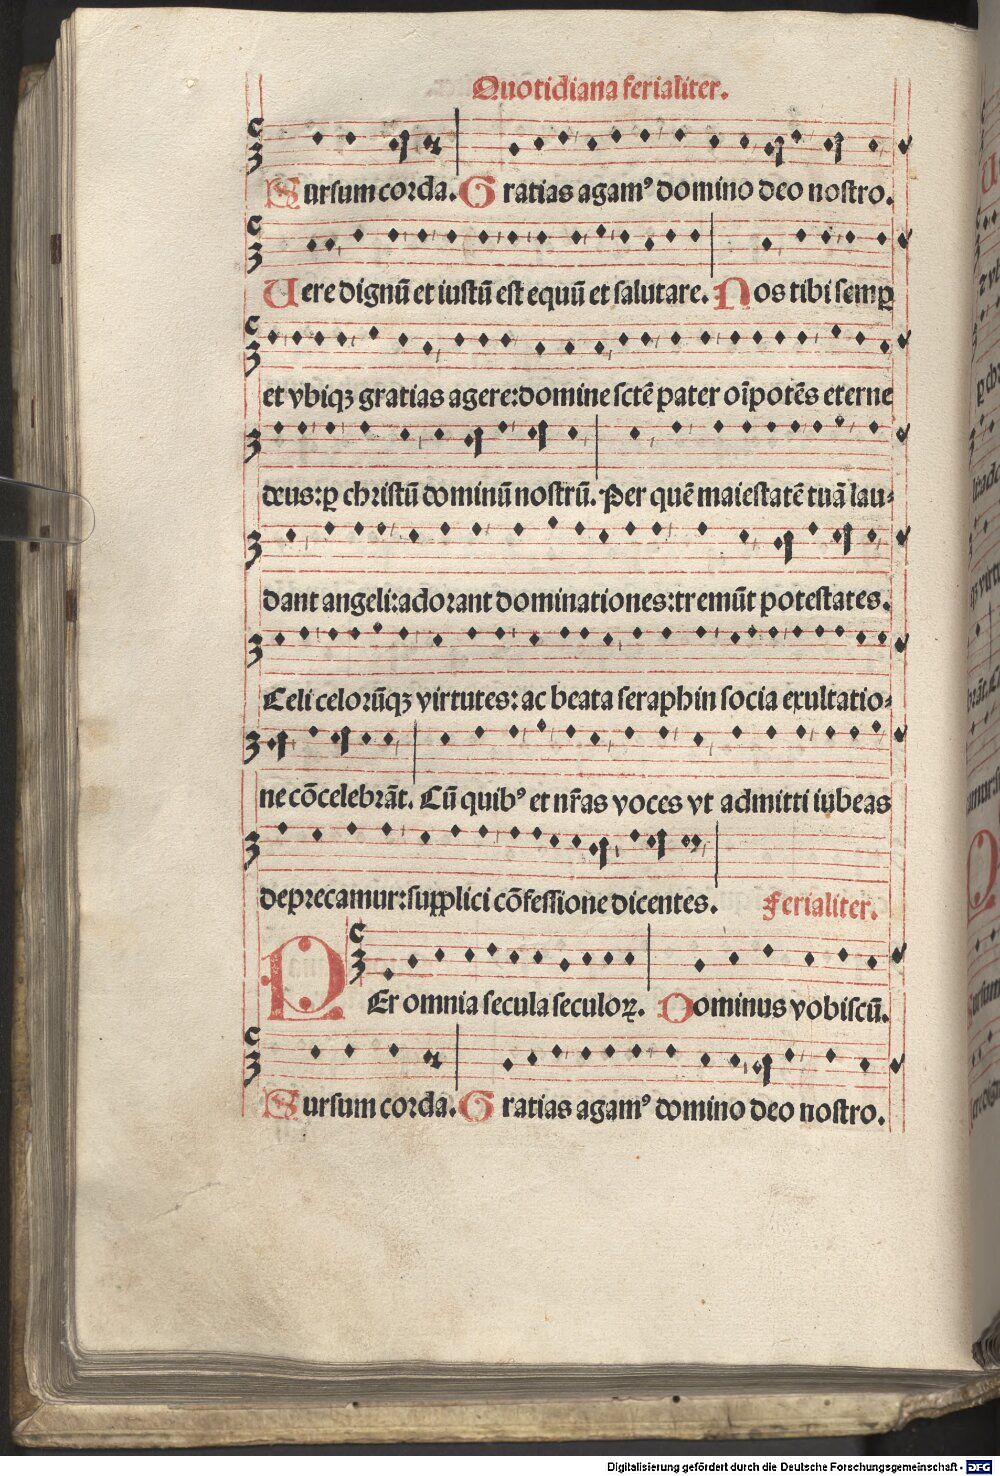 Quotidiana ferialiter.
Sursum corda. Gratias agamꝰ domino deo nostro.
Uere dignū et iustū est equū et salutare. Nos tibi semꝑ
et vbiqꝫ gratias agere: domine sctē pater oīpotēs eterne
deus: ꝑ christū dominū nostrū. Per quē maiestatē tuā lau⸗
dant angeli: adorant dominationes: tremūt potestates.
Celi celorūqꝫ virtutes: ac beata seraphin socia exultatio⸗
ne cōcelebrāt. Cū quibꝰ et nr̄as voces vt admitti iubeas
deprecamur: supplici cōfessione dicentes. Ferialiter.
PEr omnia secula seculoꝝ. Dominus vobiscū.
Sursum corda. Gratias agamꝰ domino deo nostro.
Digitalisierung gefördert durch die Deutsche Forschungsgemeinschaft - DFG